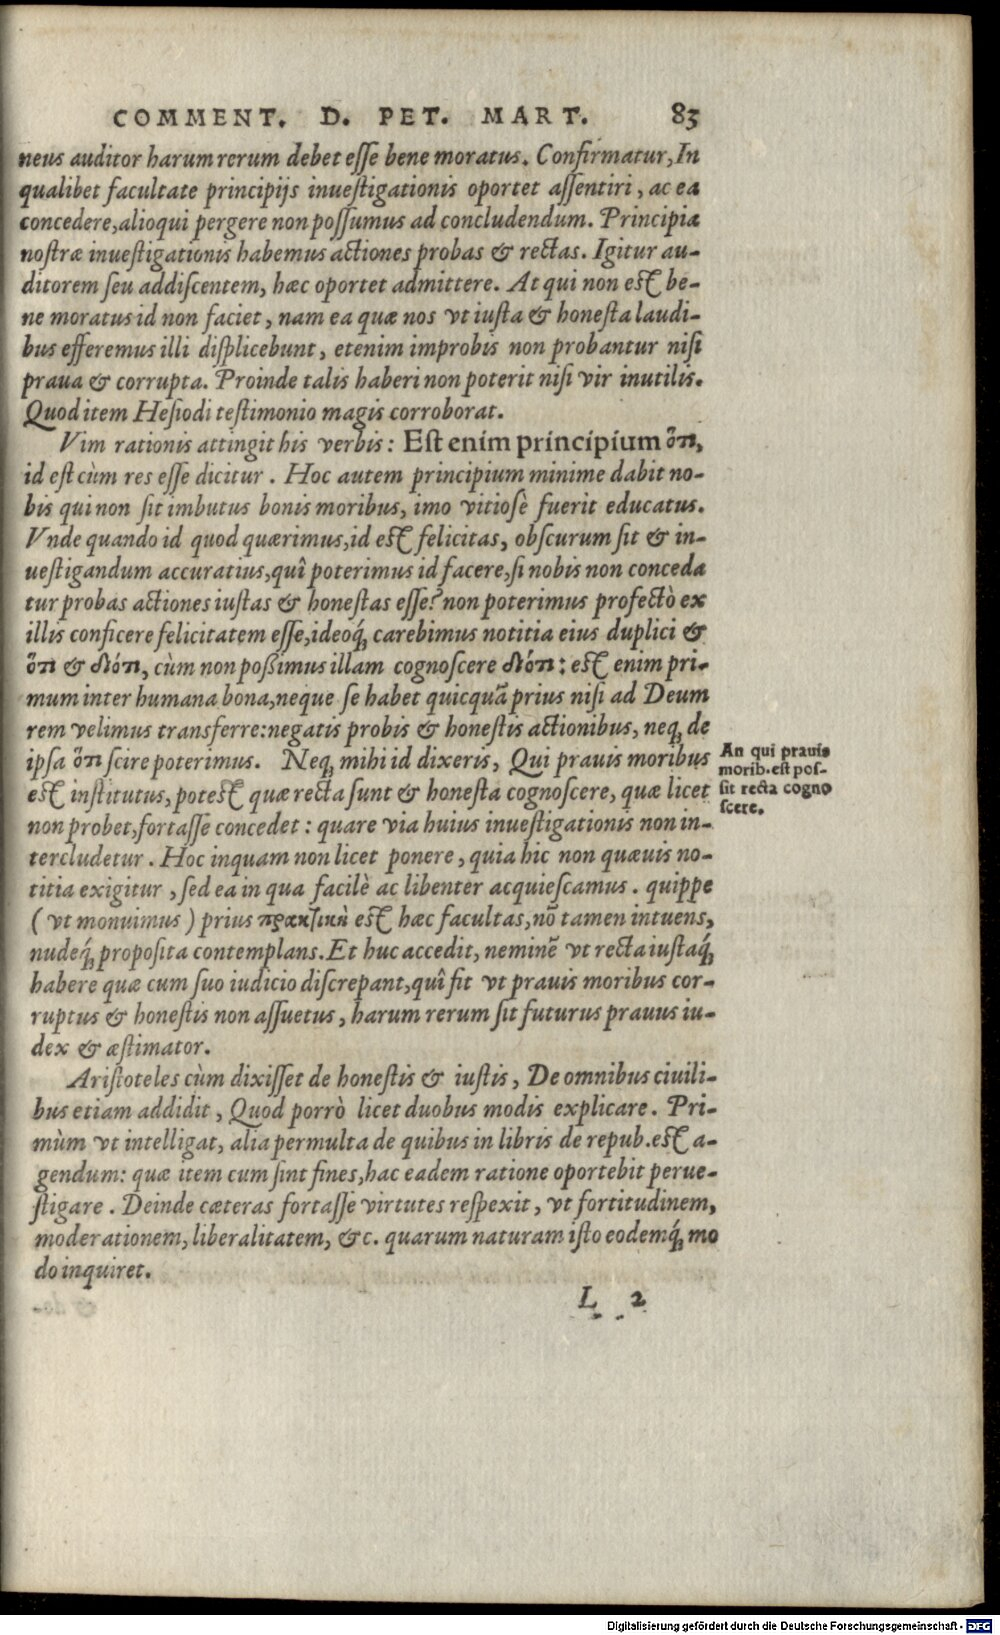 COMMENT. D. PET. MART. 83
neus auditor harum rerum debet eſſe bene moratus. Confirmatur, In
qualibet facultate principijs inueſtigationis oportet aſſentiri, ac ea
concedere, alioqui pergere non poſſumus ad concludendum. Principia
noſtræ inueſtigationis habemus actiones probas & rectas. Igitur au-
ditorem ſeu addiſcentem, hæc oportet admittere. At qui non eſt be-
ne moratus id non faciet, nam ea quæ nos vt iuſta & honeſta laudi-
bus efferemus illi diſplicebunt, etenim improbis non probantur niſi
praua & corrupta. Proinde talis haberi non poterit niſi vir inutilis.
Quod item Heſiodi teſtimonio magis corroborat.
Vim rationis attingit his verbis: Eſt enim principium ὅτι,
id eſt cùm res eſſe dicitur. Hoc autem principium minime dabit no-
bis qui non ſit imbutus bonis moribus, imo vitiosè fuerit educatus.
Vnde quando id quod quærimus, id eſt felicitas, obſcurum ſit & in-
ueſtigandum accuratius, quî poterimus id facere, ſi nobis non conceda
tur probas actiones iuſtas & honeſtas eſſe? non poterimus profectò ex
illis conficere felicitatem eſſe, ideoq́; carebimus notitia eius duplici &
ὅτι & διότι, cùm non poßimus illam cognoſcere διότι: eſt enim pri-
mum inter humana bona, neque ſe habet quicquã prius niſi ad Deum
rem velimus transferre: negatis probis & honeſtis actionibus, neq; de
ipſa ὅτι ſcire poterimus. Neq; mihi id dixeris, Qui prauis moribus
eſt inſtitutus, poteſt quæ recta ſunt & honeſta cognoſcere, quæ licet
non probet, fortaſſe concedet: quare via huius inueſtigationis non in-
tercludetur. Hoc inquam non licet ponere, quia hic non quæuis no-
titia exigitur, ſed ea in qua facilè ac libenter acquieſcamus. quippe
(vt monuimus) prius πρακτικὴ eſt hæc facultas, nõ tamen intuens,
nudeq́; propoſita contemplans. Et huc accedit, neminẽ vt recta iuſtaq́;
habere quæ cum ſuo iudicio diſcrepant, quî fit vt prauis moribus cor-
ruptus & honeſtis non aſſuetus, harum rerum ſit futurus prauus iu-
dex & æſtimator.
An qui prauis
morib. eſt poſ-
ſit recta cogno
ſcere.
Ariſtoteles cùm dixiſſet de honeſtis & iuſtis, De omnibus ciuili-
bus etiam addidit, Quod porrò licet duobus modis explicare. Pri-
mùm vt intelligat, alia permulta de quibus in libris de repub. eſt a-
gendum: quæ item cum ſint fines, hac eadem ratione oportebit perue-
ſtigare. Deinde cæteras fortaſſe virtutes reſpexit, vt fortitudinem,
moderationem, liberalitatem, &c. quarum naturam iſto eodemq́; mo
do inquiret.
L 2
Digitalisierung gefördert durch die Deutsche Forschungsgemeinschaft - DFG